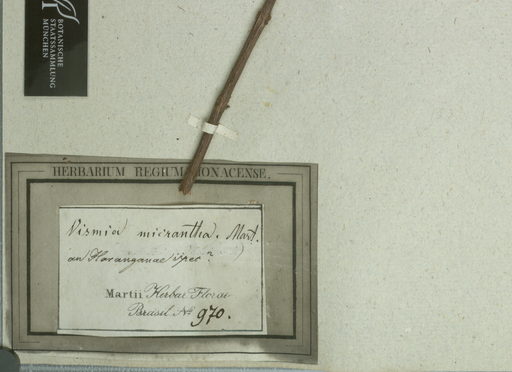 BOTANISCHE
STAATSSAMMLUNG
MÜNCHEN
HERBARIUM REGIUM MONACENSE.
Vismia micrantha. Mart.
an Haronganae spec?
Martii Herbar. Florae
Brasil. No 970.